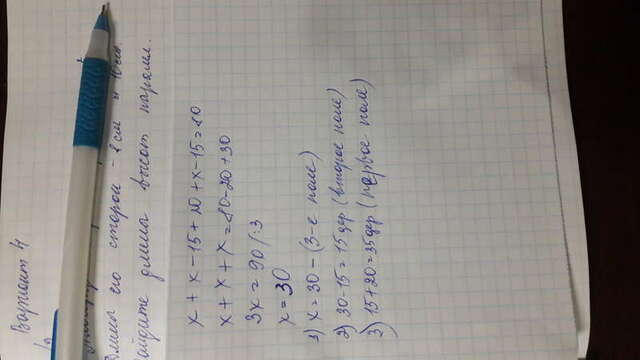 Вариант 4
Длины его сторон - 2 см и 10 см.
Найдите длины высот паралл.
x + x - 15 + 20 + x - 15 = 80
x + x + x = 80 - 20 + 30
3x = 90 /:3
x = 30
1) x = 30 - (3-е поле)
2) 30-15 = 15 дер (второе поле)
3) 15+20 = 35 дер (первое поле)